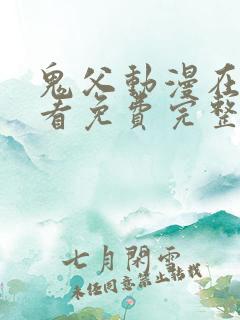 鬼父動漫在
看免費完整
七月閑雲
未經同意禁止轉載